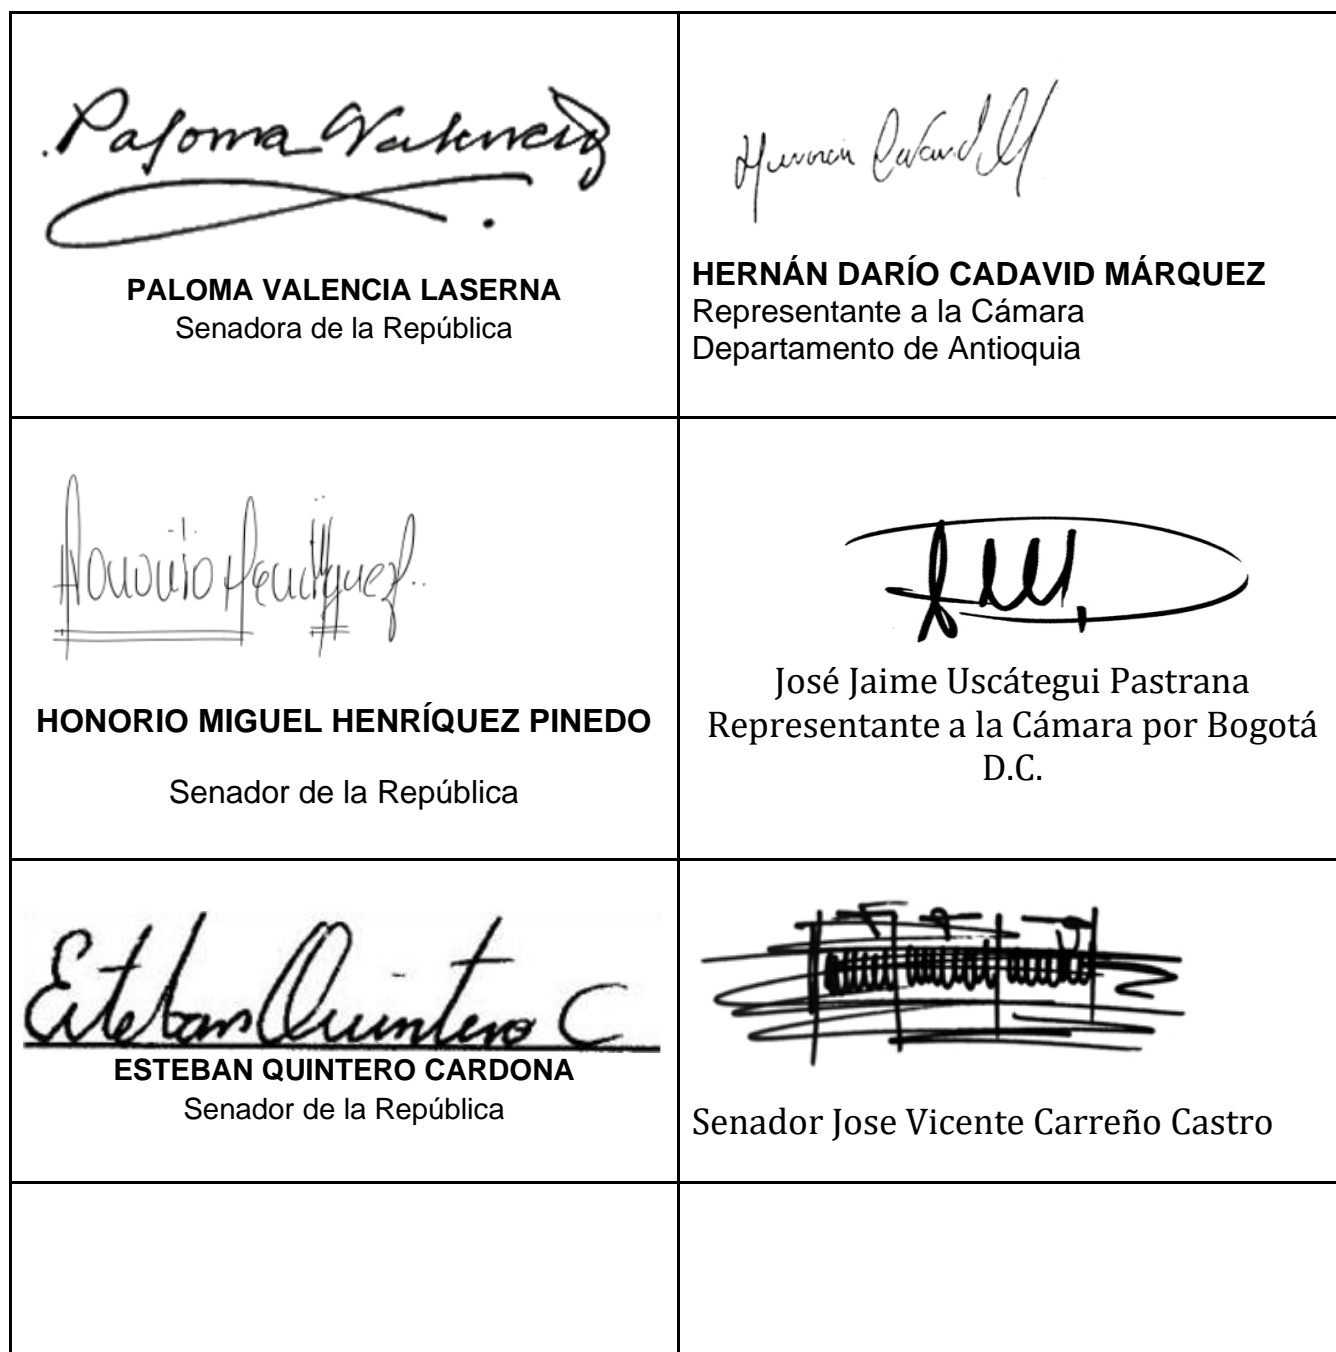 Paloma Valencia
PALOMA VALENCIA LASERNA
Senadora de la República
Hernán Cadavid M
HERNÁN DARÍO CADAVID MÁRQUEZ
Representante a la Cámara
Departamento de Antioquia
Honorio Henríquez
HONORIO MIGUEL HENRÍQUEZ PINEDO
Senador de la República
José Jaime Uscátegui Pastrana
Representante a la Cámara por Bogotá
D.C.
Esteban Quintero C
ESTEBAN QUINTERO CARDONA
Senador de la República
Senador Jose Vicente Carreño Castro